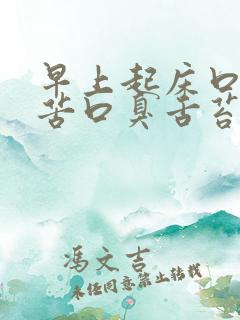 早上起床口
苦口臭舌苔
冯文吉
未经同意禁止转载